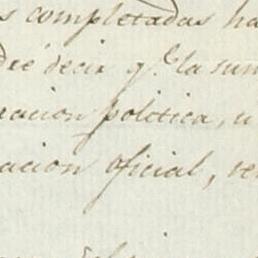 s completadas ha
dré decir q.e la sum
racion politica, u
acion oficial, ve